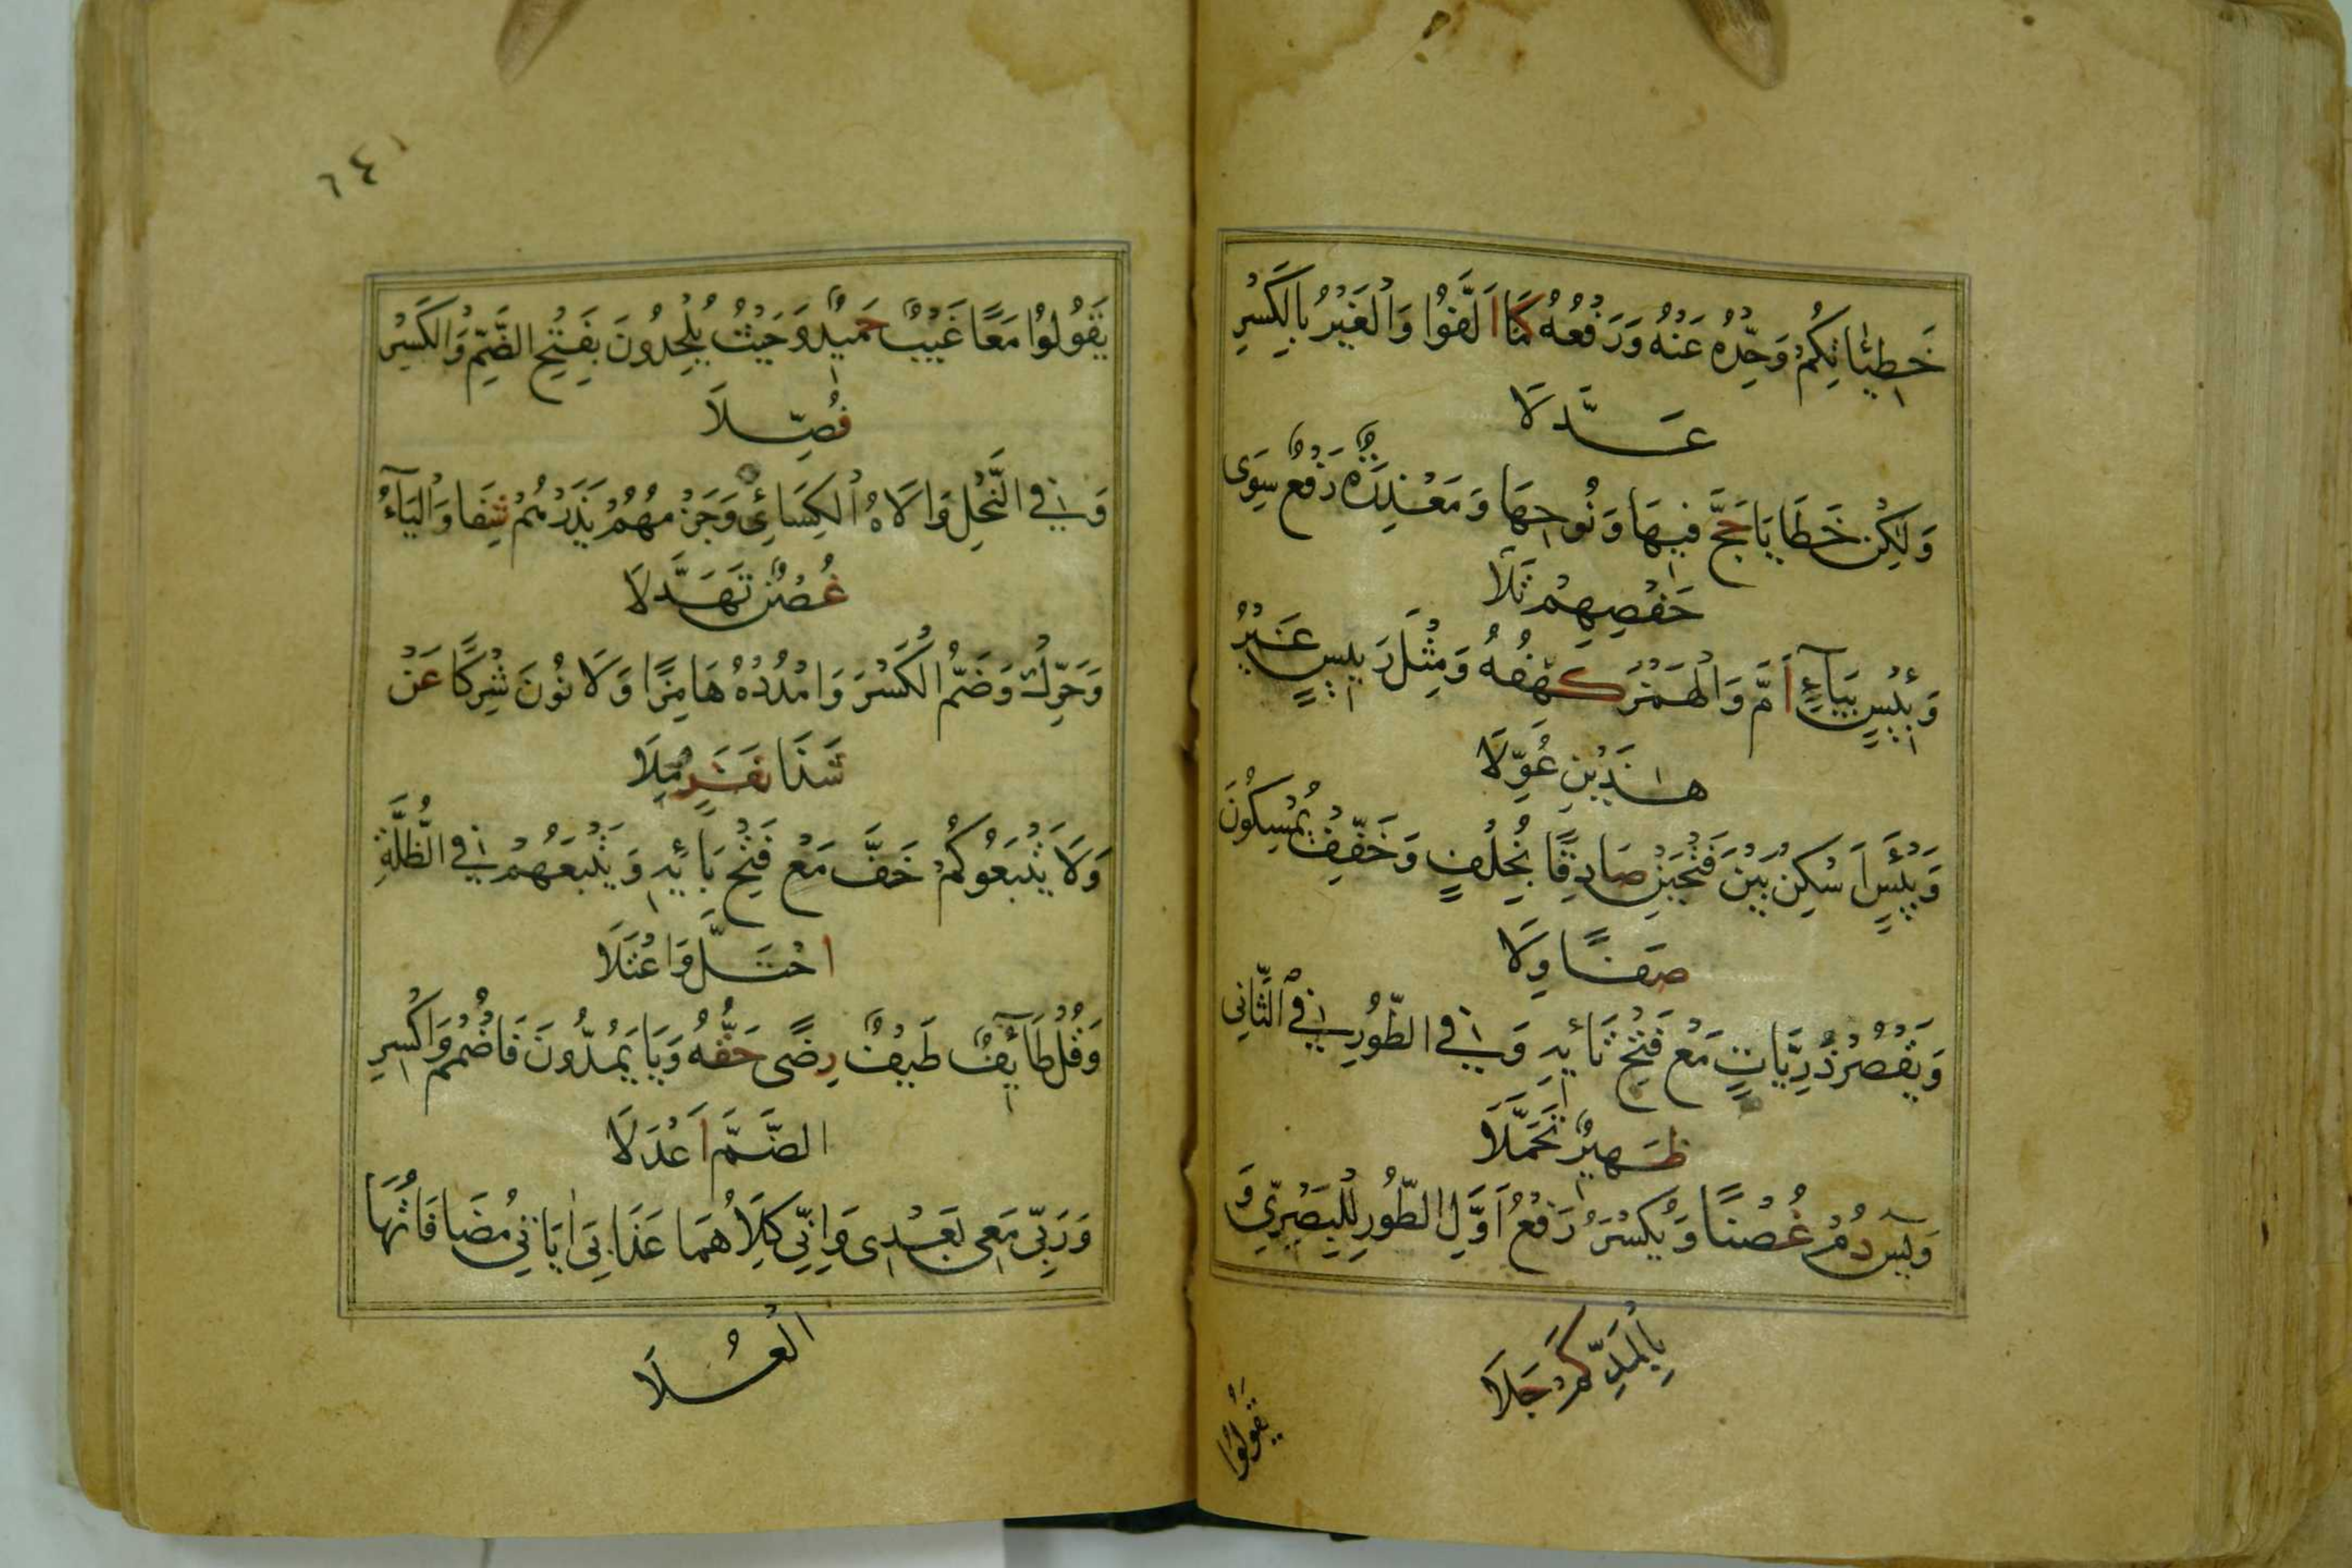 خَطِيئَاتُكُمْ وَحِّدْهُ عَنْهُ وَرَفْعُهُ كَمَا اَلَّفُوا وَالْغَيْرُ بِالْكَسْرِ
عَدَّلَا
وَلٰكِنْ خَطَايَا حَجَّ فِيهَا وَنُوحِهَا وَمَعْذِرَةٌ رَفْعٌ سِوَى
حَفْصِهِمْ تَلَا
وَبِئْسٍ بِيَاءٍ اَمَّ وَالْهَمْزُ كَهْفُهُ وَمِثْلَ رَئِيسٍ غَيْرُ
هٰذَيْنِ عَوَّلَا
وَبَيْئَسٍ اَسْكِنْ بَيْنَ فَتْحَيْنِ صَادِقًا بِخُلْفٍ وَخَفِّفْ يُمْسِكُونَ
صَفَا وِلَا
وَيَقْصُرُ ذُرِّيَّاتِ مَعْ فَتْحِ تَائِهِ وَفِي الطُّورِ فِي الثَّانِي
ظَهِيرٌ تَحَمَّلَا
وَيٰسٓ دُمْ غُصْنًا وَيُكْسَرُ رَفْعُ اَوَّلِ الطُّورِ لِلْبَصْرِيّ وَ
بِالْمَدِّ كَمْ حَلَا
يَقُولُوا
٦٤١
يَقُولُوا مَعًا غَيْبٌ حَمِيدٌ وَحَيْثُ يُلْحِدُونَ بِفَتْحِ الضَّمِّ وَالْكَسْرِ
فُصِّلَا
وَفِي النَّحْلِ وَالَاهُ الْكِسَائِي وَجَزْمُهُمْ يَذَرْهُمْ شَفَا وَالْيَاءُ
غُصْنٌ تَهَدَّلَا
وَحَرِّكْ وَضَمَّ الْكَسْرَ وَامْدُدْهُ هَامِزًا وَلَا نُونَ شِرْكًا عَنْ
شَذَا نَفَرٍ مِلَا
وَلَا يَتْبَعُوكُمْ خَفَّ مَعْ فَتْحِ بَائِهِ وَيَتْبَعُهُمْ فِي الظُّلَّةِ
احْتَلَّ وَاعْتَلَا
وَقُلْ طَائِفٌ طَيْفٌ رِضًى حَقُّهُ وَيَا يَمُدُّونَ فَاضْمُمْ وَاكْسِرِ
الضَّمَّ اَعْدَلَا
وَرَبِّي مَعِي بَعْدِي وَاِنِّي كِلَاهُمَا عَذَابِيَ اٰيَاتِي مُضَافَاتُهَا
الْعُلَا